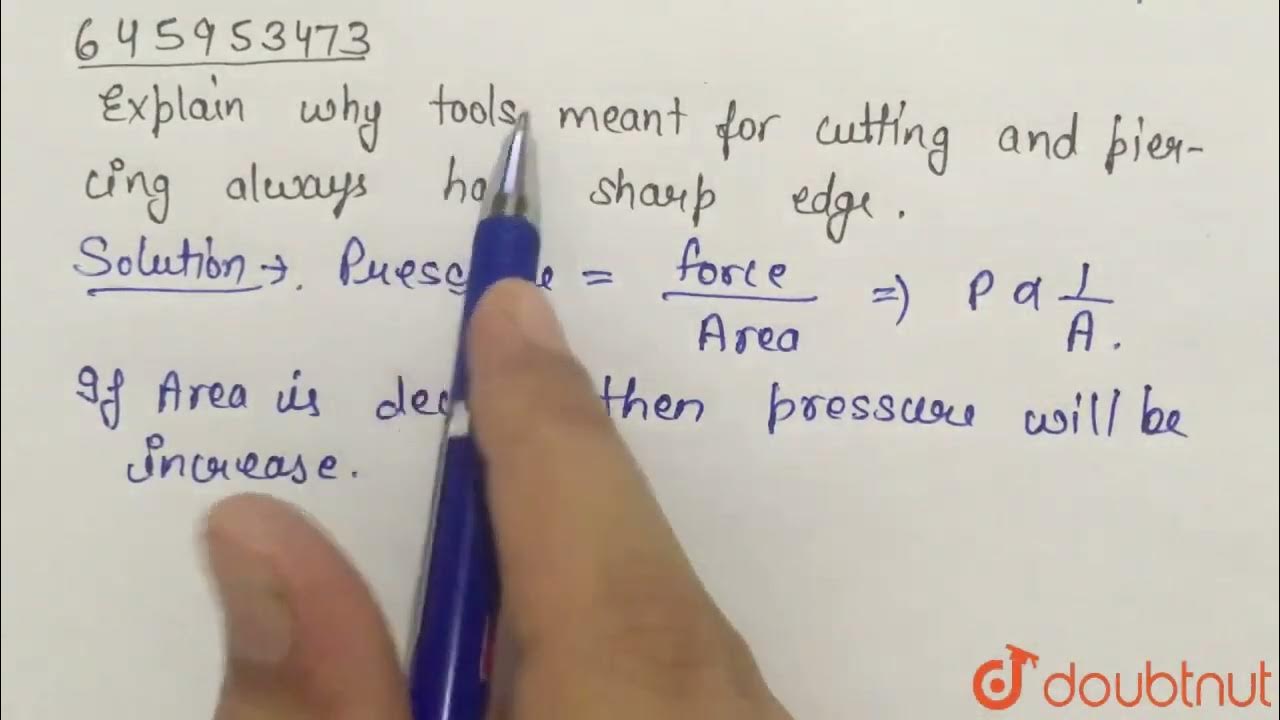 645953473
Explain why tools meant for cutting and pier-
cing always sharp edge.
Solution → Pressure = force/Area => P α 1/A.
If Area is then pressure will be
increase.
doubtnut